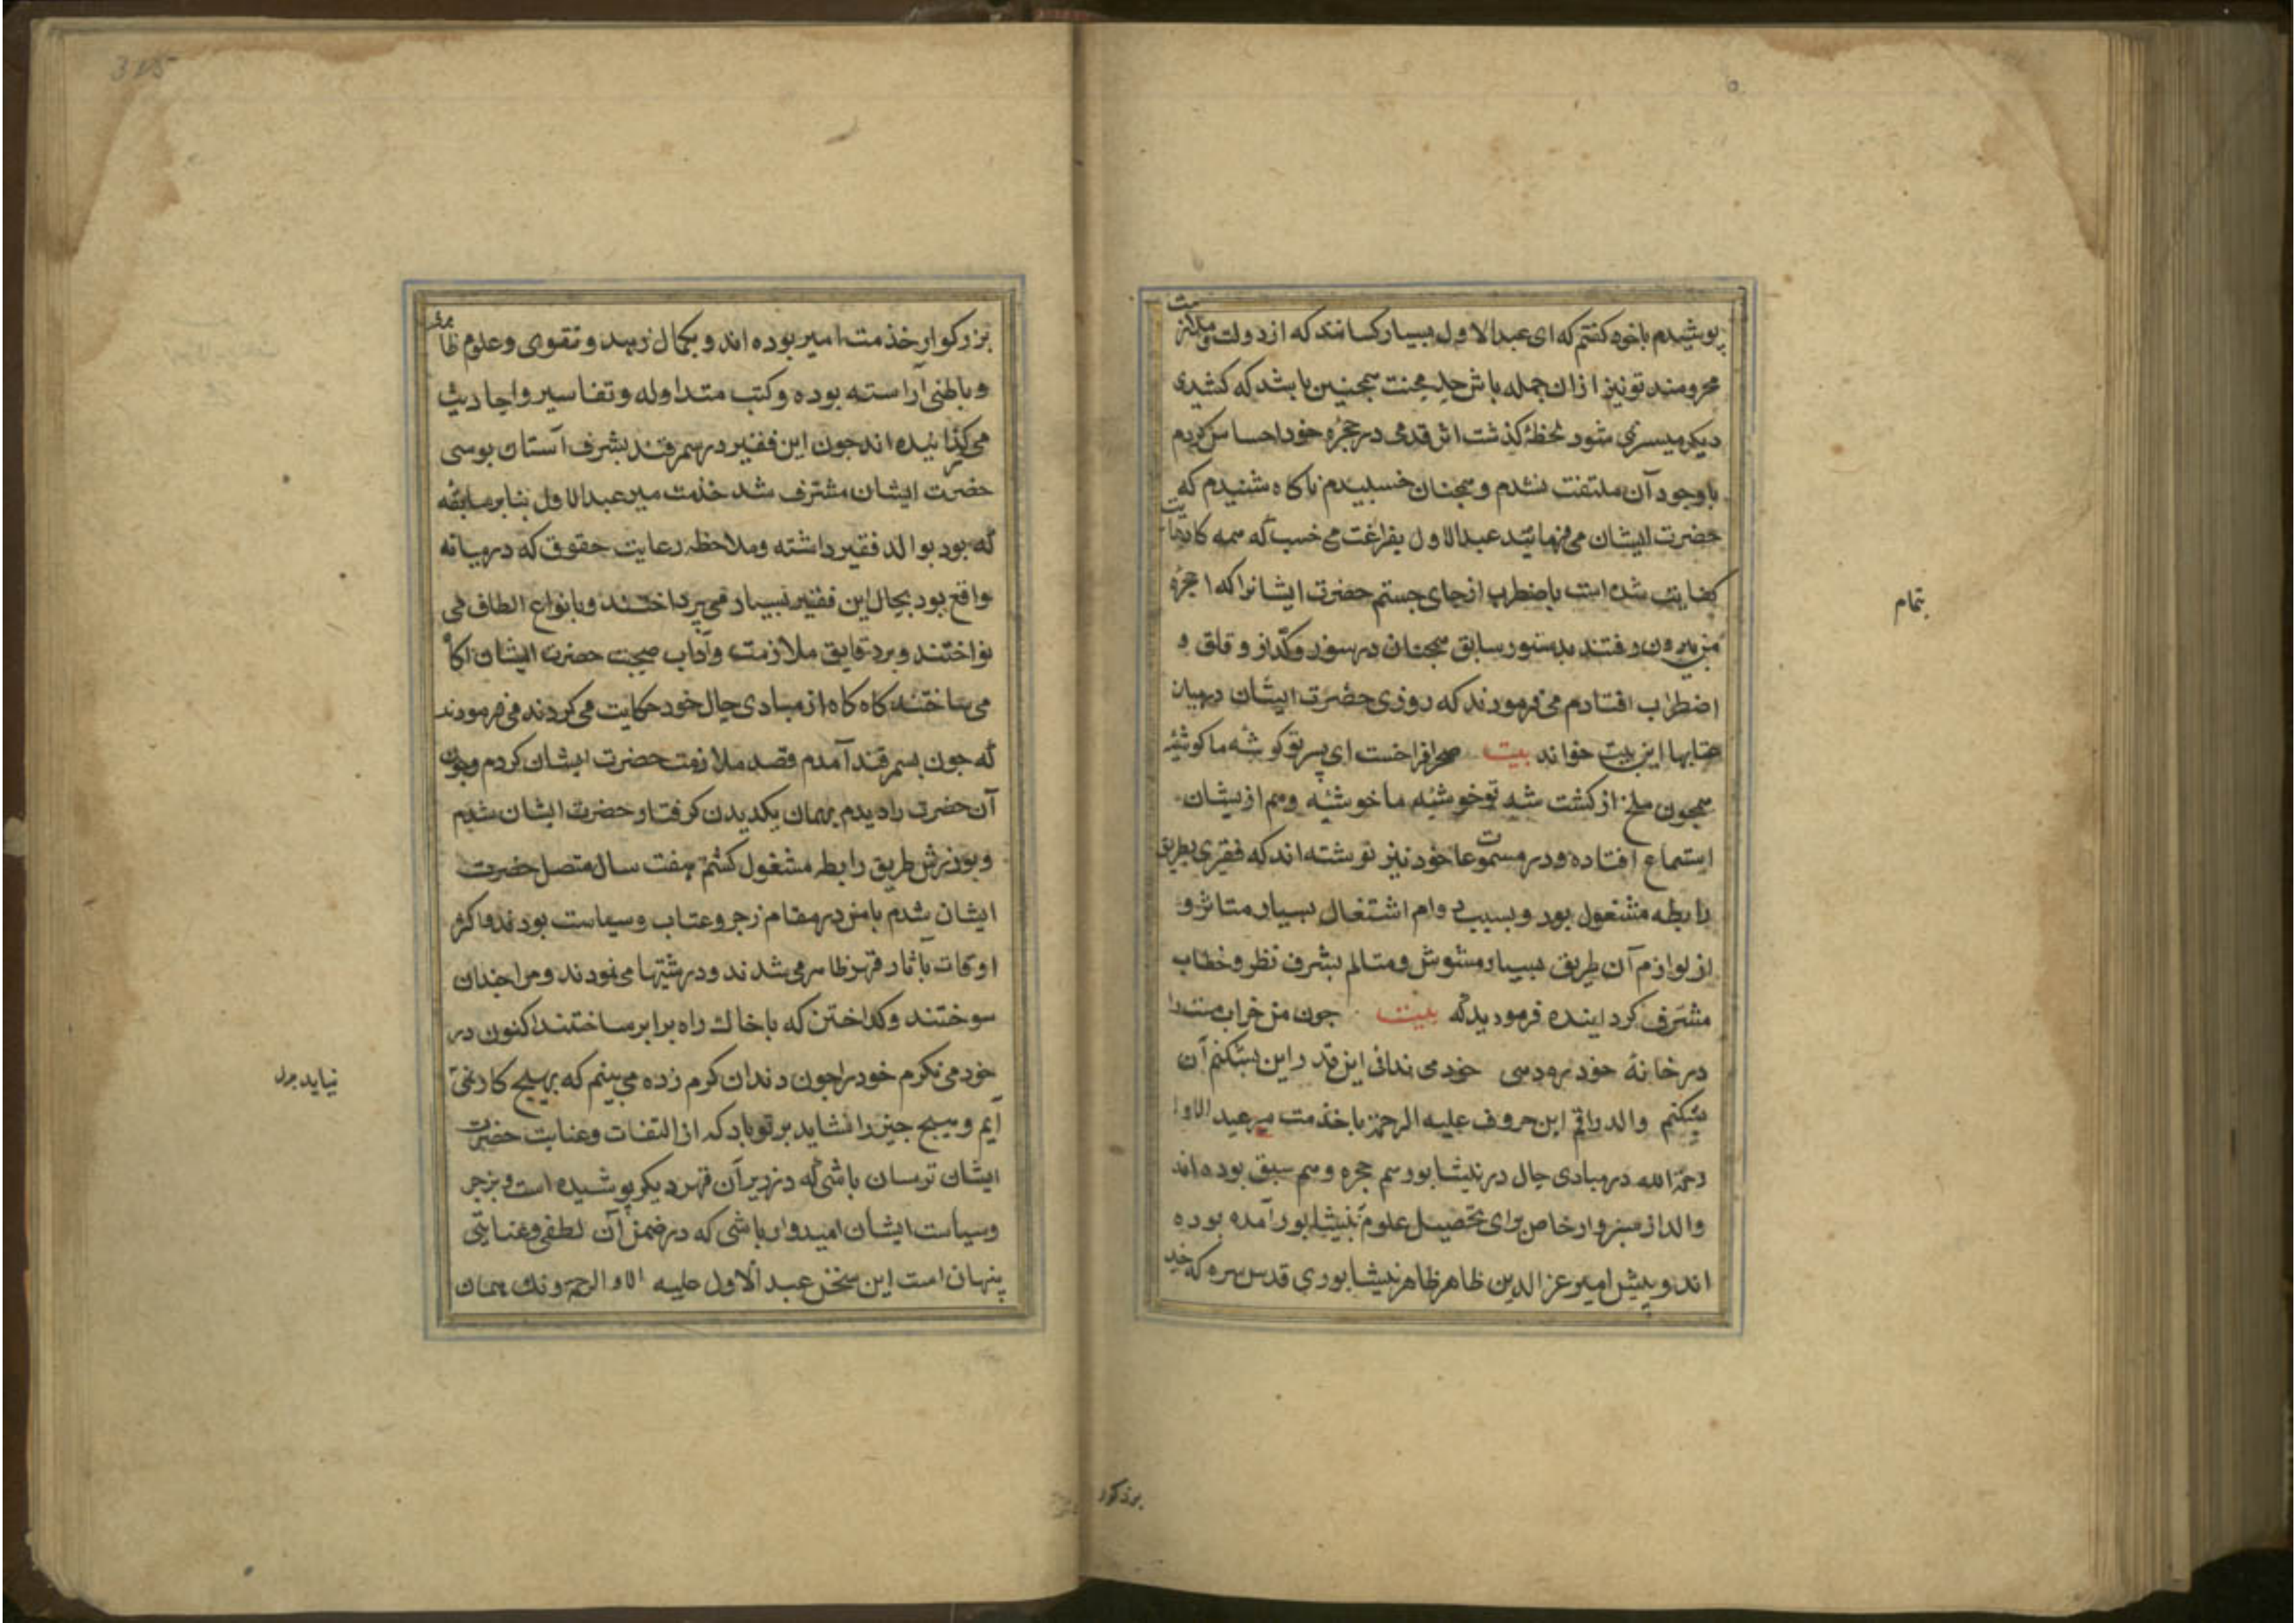 پوشیدم باخود کفتم که ای عبدالاول بسیار کسانند که از دولت ملازمت
محرومند تو نیز ازان جمله باش محنت همچنین باشد که کشیدی
دیکر میسر نمی شود لحظهٔ کذشت اثر قدمی در حجرهٔ خود احساس کردم
باوجود آن ملتفت نشدم و همچنان خسبیدم ناکاه شنیدم که
حضرت ایشان می فرمائید عبدالاول بفراغت می خسب که همه کارهات
کفایت شده است باضطراب از جای جستم حضرت ایشانرا که از حجرهٔ
من بیرون رفتند بدستور سابق همچنان در سوز و کداز و قلق و
اضطراب افتادم می فرمودند که روزی حضرت ایشان در میان
عتابها این بیت خواند بیت صحرا فراخست ای پسر تو کوشهٔ ما کوشهٔ
همچون ملخ از کشت شه تو خوشهٔ ما خوشهٔ و هم از ایشان
استماع افتاده و در مسموعات خود نیز نوشته اند که فقیری بطریق
رابطه مشغول بود و بسبب دوام اشتغال بسیار متاثر و
از لوازم آن طریق بسیار مشوش و متالم بشرف نظر و خطاب
مشرف کردانیده فرمودید که بیت چون من خراب مست را
در خانهٔ خود ره دهی خود می ندانی این قدر این بشکنم آن
بشکنم والد راقم این حروف علیه الرحمه با خدمت میر عبد الاول
رحمة الله در مبادی حال در نیشابور هم حجره و هم سبق بوده اند
والد از سبزوار خاص برای تحصیل علوم بنیشابور آمده بوده
اند و پیش امیر عز الدین طاهر نیشابوری قدس سره که
تمام
بزرکوار
بزرکوار خدمت امیر بوده اند و بکمال زهد و تقوی و علوم ظاهری
و باطنی آراسته بوده و کتب متداوله و تفاسیر و احادیث
می کذرانیده اند چون این فقیر در سمرقند بشرف آستان بوسی
حضرت ایشان مشرف شد خدمت میر عبدالاول بنابر سابقه
که بود بوالد فقیر داشته و ملاحظه رعایت حقوق که در میانه
واقع بود بحال این فقیر بسیار می پرداختند و بانواع الطاف می
نواختند و بر دقایق ملازمت و آداب صحبت حضرت ایشان آکاه
می ساختند کاه کاه از مبادی حال خود حکایت می کردند می فرمودند
که چون بسمرقند آمدم قصد ملازمت حضرت ایشان کردم و چون
آن حضرت را دیدم بهمان یکدیدن کرفتار حضرت ایشان شدم
و بورزش طریق رابطه مشغول کشتم هفت سال متصل حضرت
ایشان شدم بامن در مقام زجر و عتاب و سیاست بودند و اکثر
اوقات بآثار قهر ظاهر می شدند و درشتیها می نمودند و مرا چندان
سوختند و کداختن که با خاك راه برابر ساختند اکنون در
خود می نکرم خود را چون دندان کرم زده می بینم که بهیچ کار نمی
آیم و هیچ چیز را نشاید بر تو باد که از التفات و عنایت حضرت
ایشان ترسان باشی که در زیر آن قهر دیکر پوشیده است و بزجر
و سیاست ایشان امیدوار باشی که در ضمن آن لطفی و عنایتی
پنهان است این سخن عبد الاول علیه الرحمه و نك همان
نیاید